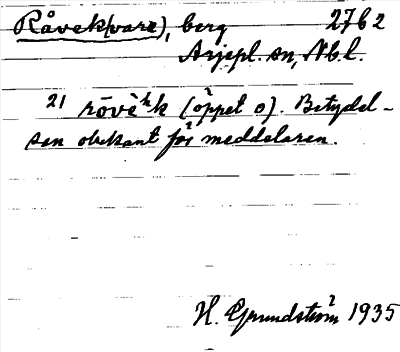 Råvek(vare), berg 2762
Arjepl. sn, Nbl.
21 rōvèʰk (öppet o). Betydel-
sen obekant för meddelaren.
H. Grundström 1935